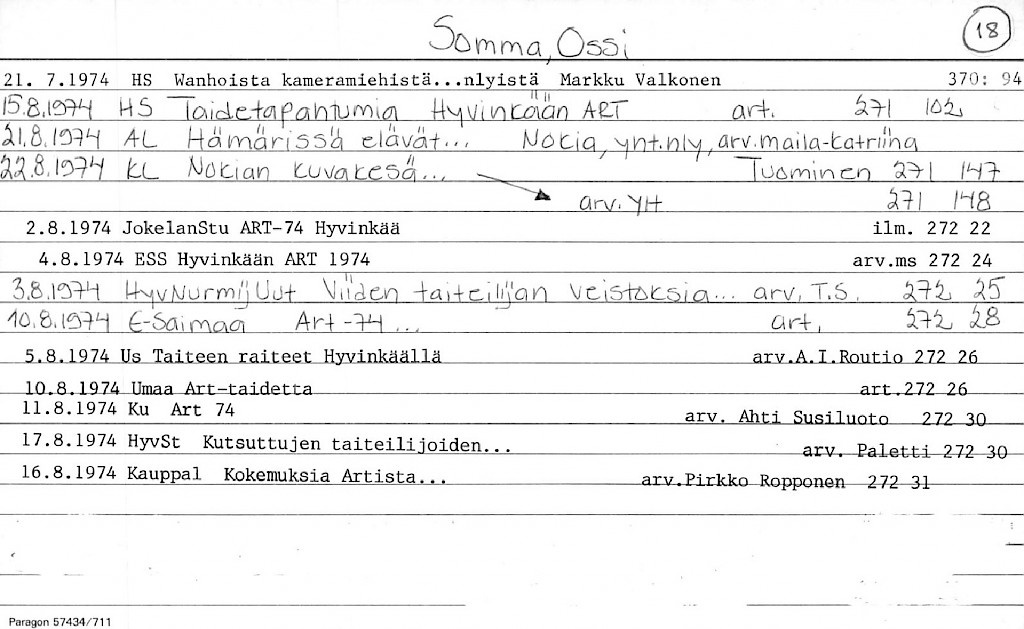 Somma, Ossi 18
21. 7.1974 HS Wanhoista kameramiehistä...nlyistä Markku Valkonen 370: 94
15.8.1974 HS Taidetapahtumia Hyvinkään ART art. 271 102
21.8.1974 AL Hämärissä elävät... Nokia, ynt.nly, arv.maila-Katriina
22.8.1974 KL Nokian kuvakesä... Tuominen 271 147
arv. YH 271 148
2.8.1974 JokelanStu ART-74 Hyvinkää ilm. 272 22
4.8.1974 ESS Hyvinkään ART 1974 arv.ms 272 24
3.8.1974 HyvNurmijUut Viiden taiteilijan veistoksia... arv. T.S. 272 25
10.8.1974 E-Saimaa Art-74 ... art. 272 28
5.8.1974 Us Taiteen raiteet Hyvinkäällä arv.A.I.Routio 272 26
10.8.1974 Umaa Art-taidetta art.272 26
11.8.1974 Ku Art 74 arv. Ahti Susiluoto 272 30
17.8.1974 HyvSt Kutsuttujen taiteilijoiden... arv. Paletti 272 30
16.8.1974 Kauppal Kokemuksia Artista... arv.Pirkko Ropponen 272 31
Paragon 57434/711